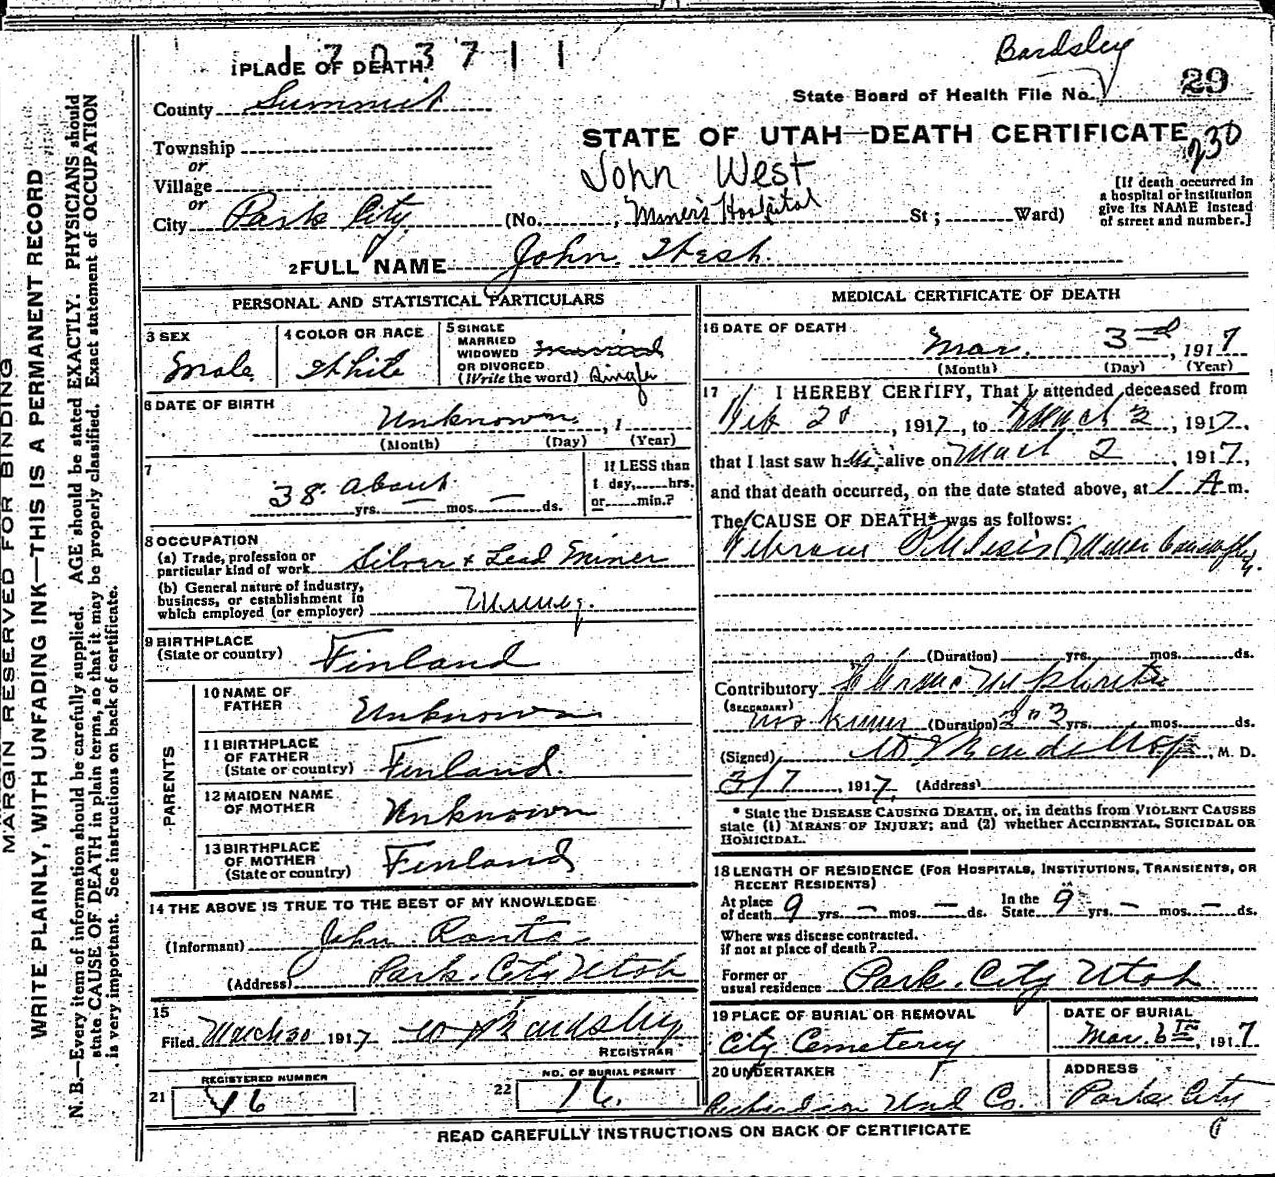 1703711
Bardsley
1 PLACE OF DEATH
County Summit
State Board of Health File No. 29
STATE OF UTAH—DEATH CERTIFICATE
230
Township
or
Village
or
City Park City
John West
(No. Miner's Hospital St; Ward)
[If death occurred in
a hospital or institution
give its NAME instead
of street and number.]
2 FULL NAME John West
MARGIN RESERVED FOR BINDING
WRITE PLAINLY, WITH UNFADING INK—THIS IS A PERMANENT RECORD
N. B.—Every item of information should be carefully supplied. AGE should be stated EXACTLY. PHYSICIANS should
state CAUSE OF DEATH in plain terms, so that it may be properly classified. Exact statement of OCCUPATION
is very important. See instructions on back of certificate.
PERSONAL AND STATISTICAL PARTICULARS
3 SEX
Male
4 COLOR OR RACE
White
5 SINGLE
MARRIED
WIDOWED
OR DIVORCED
(Write the word) Single
6 DATE OF BIRTH
Unknown , 1
(Month) (Day) (Year)
7
38 about yrs. — mos. — ds.
If LESS than
1 day, hrs.
or min.?
8 OCCUPATION
(a) Trade, profession or
particular kind of work Silver + Lead Miner
(b) General nature of industry,
business, or establishment in
which employed (or employer) Mining
9 BIRTHPLACE
(State or country) Finland
PARENTS
10 NAME OF
FATHER Unknown
11 BIRTHPLACE
OF FATHER
(State or country) Finland
12 MAIDEN NAME
OF MOTHER Unknown
13 BIRTHPLACE
OF MOTHER
(State or country) Finland
14 THE ABOVE IS TRUE TO THE BEST OF MY KNOWLEDGE
(Informant) John Ranta
(Address) Park City Utah
15
Filed March 30 1917 Bardsley
REGISTRAR
21
REGISTERED NUMBER
16
22
NO. OF BURIAL PERMIT
16
MEDICAL CERTIFICATE OF DEATH
16 DATE OF DEATH
Mar. 3rd, 1917
(Month) (Day) (Year)
17 I HEREBY CERTIFY, That I attended deceased from
Feb 20, 1917, to March 2, 1917,
that I last saw him alive on March 2, 1917,
and that death occurred, on the date stated above, at 1 A m.
The CAUSE OF DEATH* was as follows:
Phthisis
(Duration) yrs. mos. ds.
Contributory
(SECONDARY) (Duration) 2 or 3 yrs. mos. ds.
(Signed) M. D.
3/7, 1917, (Address)
* State the DISEASE CAUSING DEATH, or, in deaths from VIOLENT CAUSES
state (1) MEANS OF INJURY; and (2) whether ACCIDENTAL, SUICIDAL OR
HOMICIDAL.
18 LENGTH OF RESIDENCE (FOR HOSPITALS, INSTITUTIONS, TRANSIENTS, OR
RECENT RESIDENTS)
At place
of death 9 yrs. — mos. — ds.
In the
State 9 yrs. — mos. — ds.
Where was disease contracted.
if not at place of death?
Former or
usual residence Park City Utah
19 PLACE OF BURIAL OR REMOVAL
City Cemetery
DATE OF BURIAL
Mar. 6th, 1917
20 UNDERTAKER
Richardson Und Co.
ADDRESS
Park City
READ CAREFULLY INSTRUCTIONS ON BACK OF CERTIFICATE